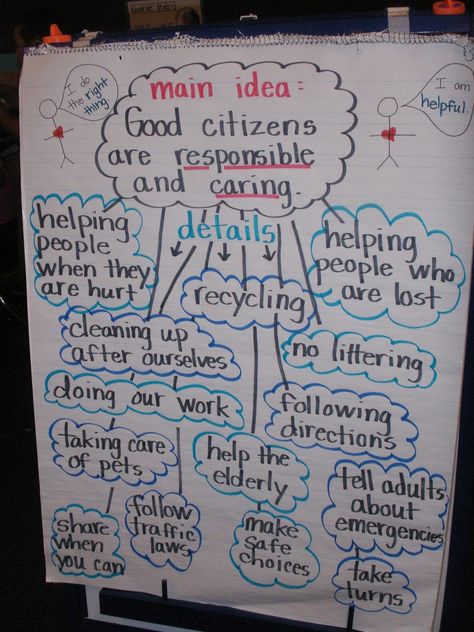 I do
the right
thing.
I am
helpful.
main idea:
Good citizens
are responsible
and caring.
details
helping
people
when they
are hurt
helping
people who
are lost
recycling
cleaning up
after ourselves
no littering
doing our work
following
directions
taking care
of pets
help the
elderly
tell adults
about
emergencies
share
when
you can
follow
traffic
laws
make
safe
choices
take
turns